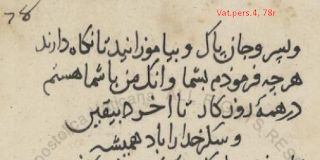 78
Vat.pers.4, 78r
وپسر وجان پاک و بیاموزانید تا نکاه دارند
هرچه فرمودم بشما وانک من با شما هستم
در همهٔ روزکار تا اخر بیقین
و سکر خدا را باد همیشه